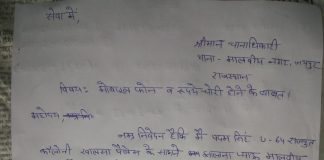 सेवा में,
श्रीमान थानाधिकारी
थाना - मालवीय नगर, जयपुर
राजस्थान
विषय: मोबाइल फोन व रुपये चोरी होने के बाबत।
महोदय
नम्र निवेदन है कि मैं पदम सिंह U-64 राजपुत
कॉलोनी खालसा पैलेस के सामने मालवीय